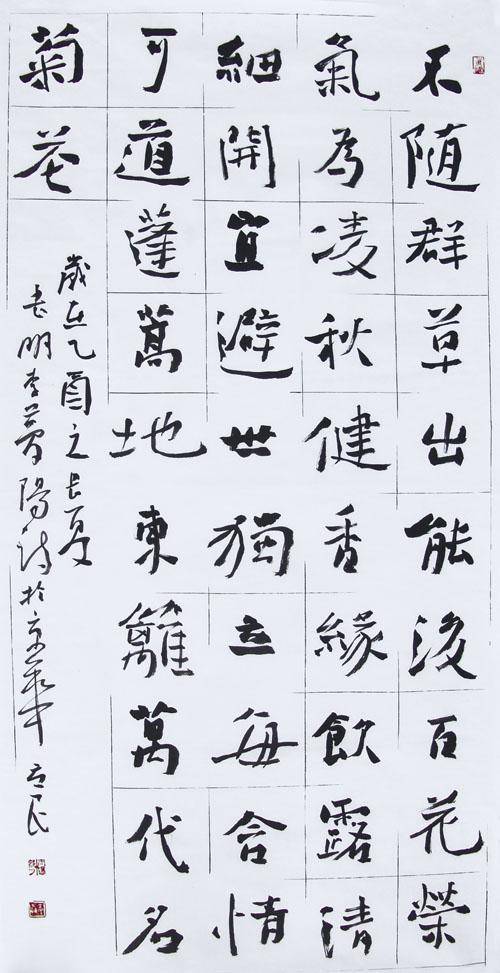 不随群草出能後百花榮
氣為凌秋健香緣飲露清
細開宜避世獨立每含情
可道蓬蒿地東籬萬代名
菊花
歲在乙酉之長夏
書明李夢陽詩於京華